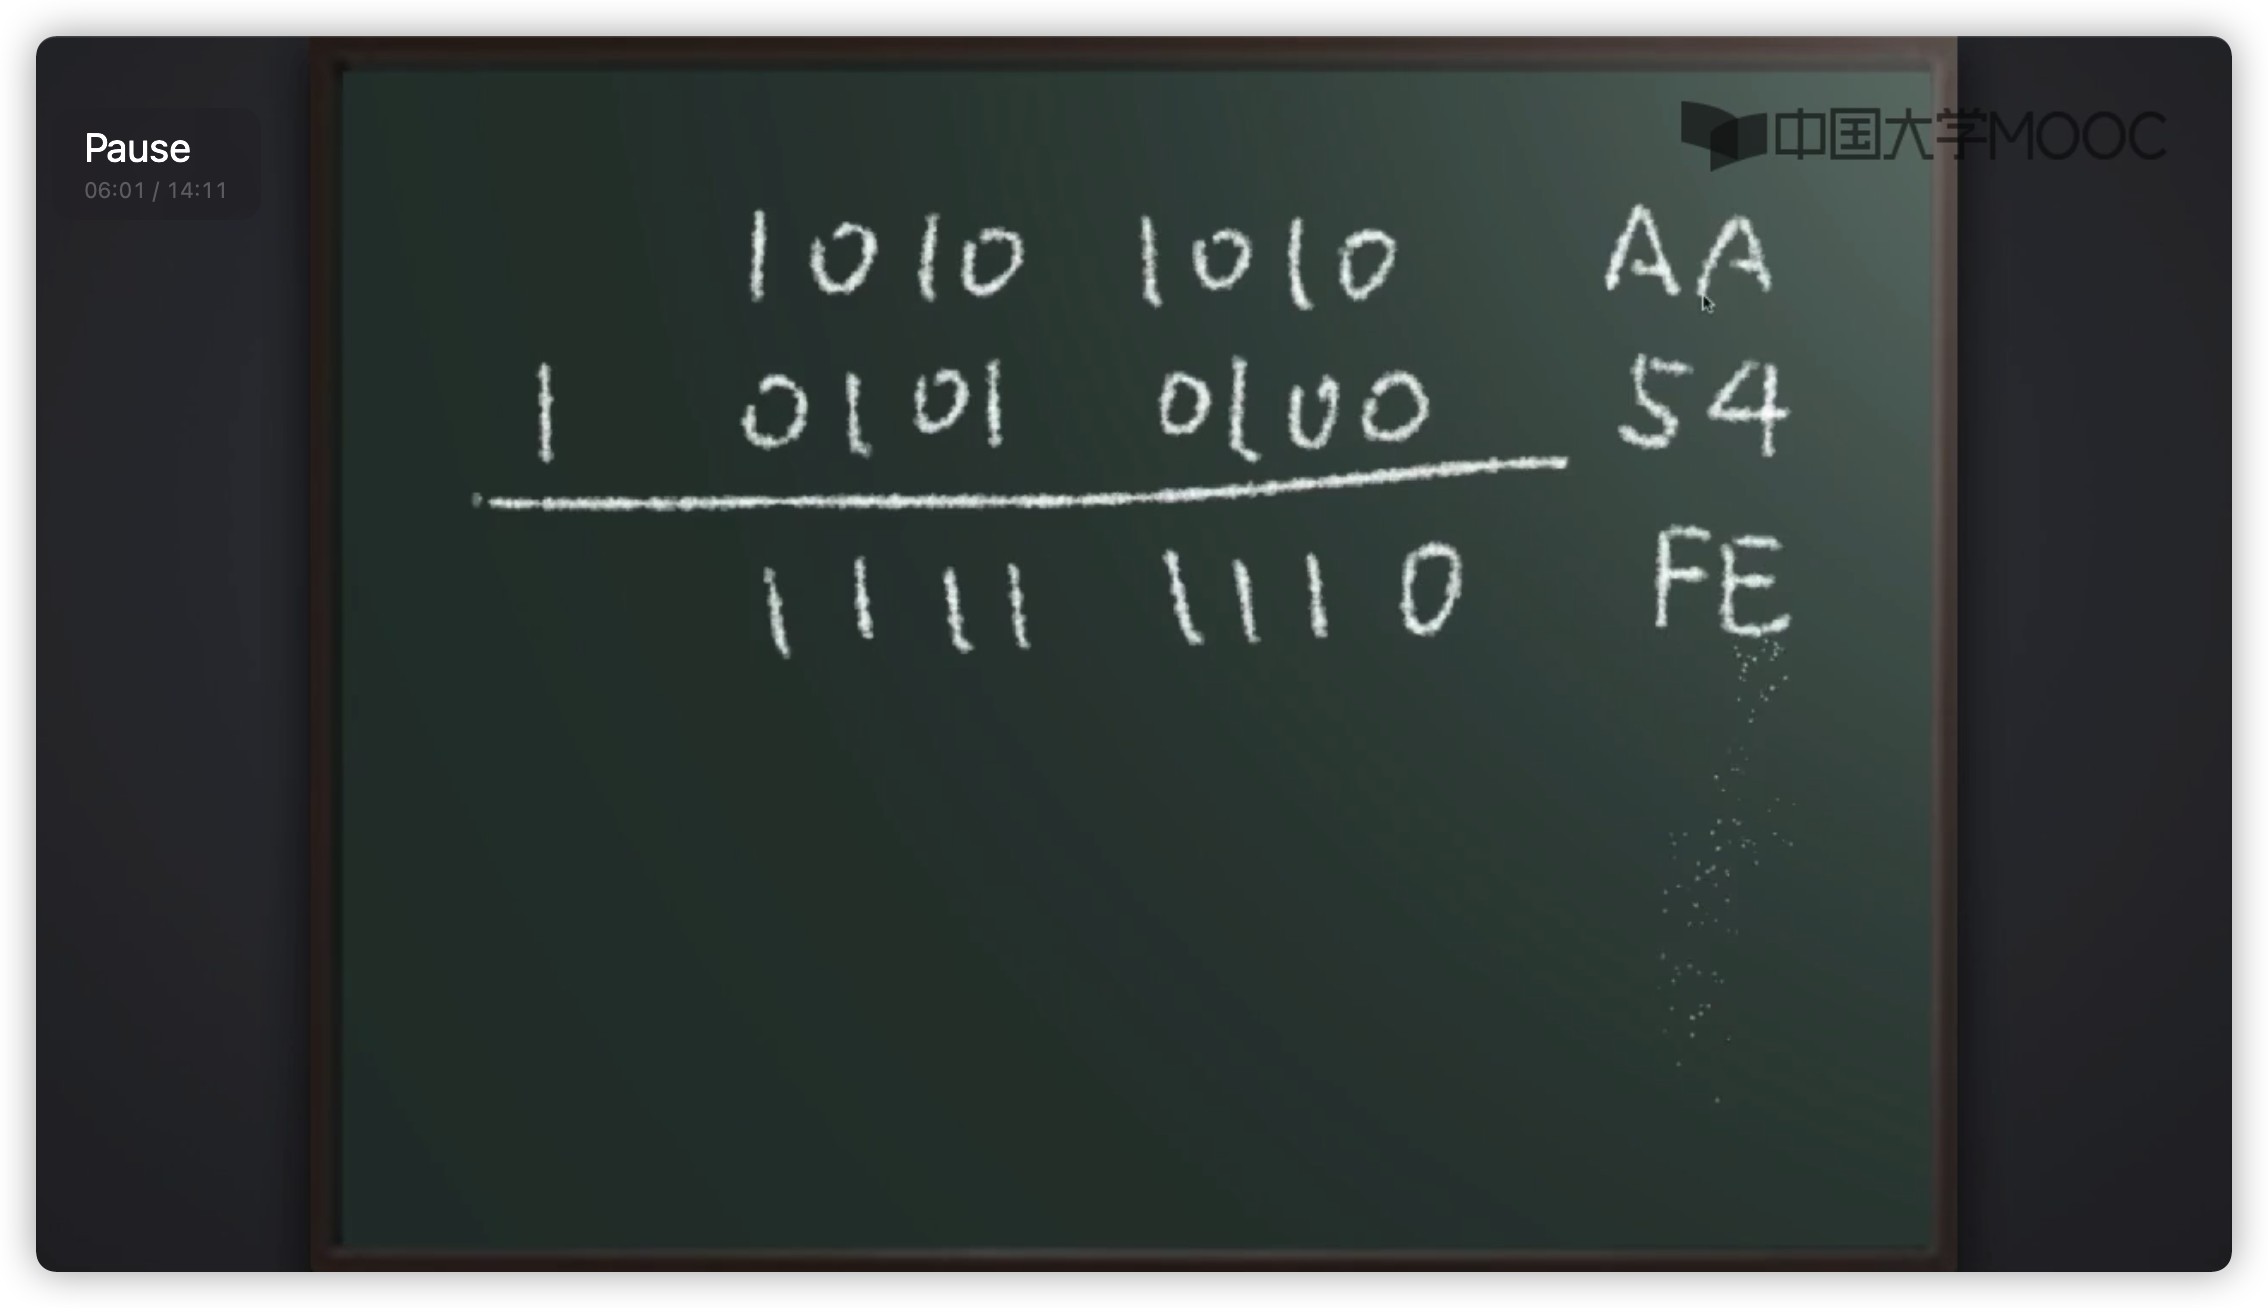 Pause
06:01 / 14:11
中国大学MOOC
1010 1010 AA
1 0101 0100 54
1111 1110 FE